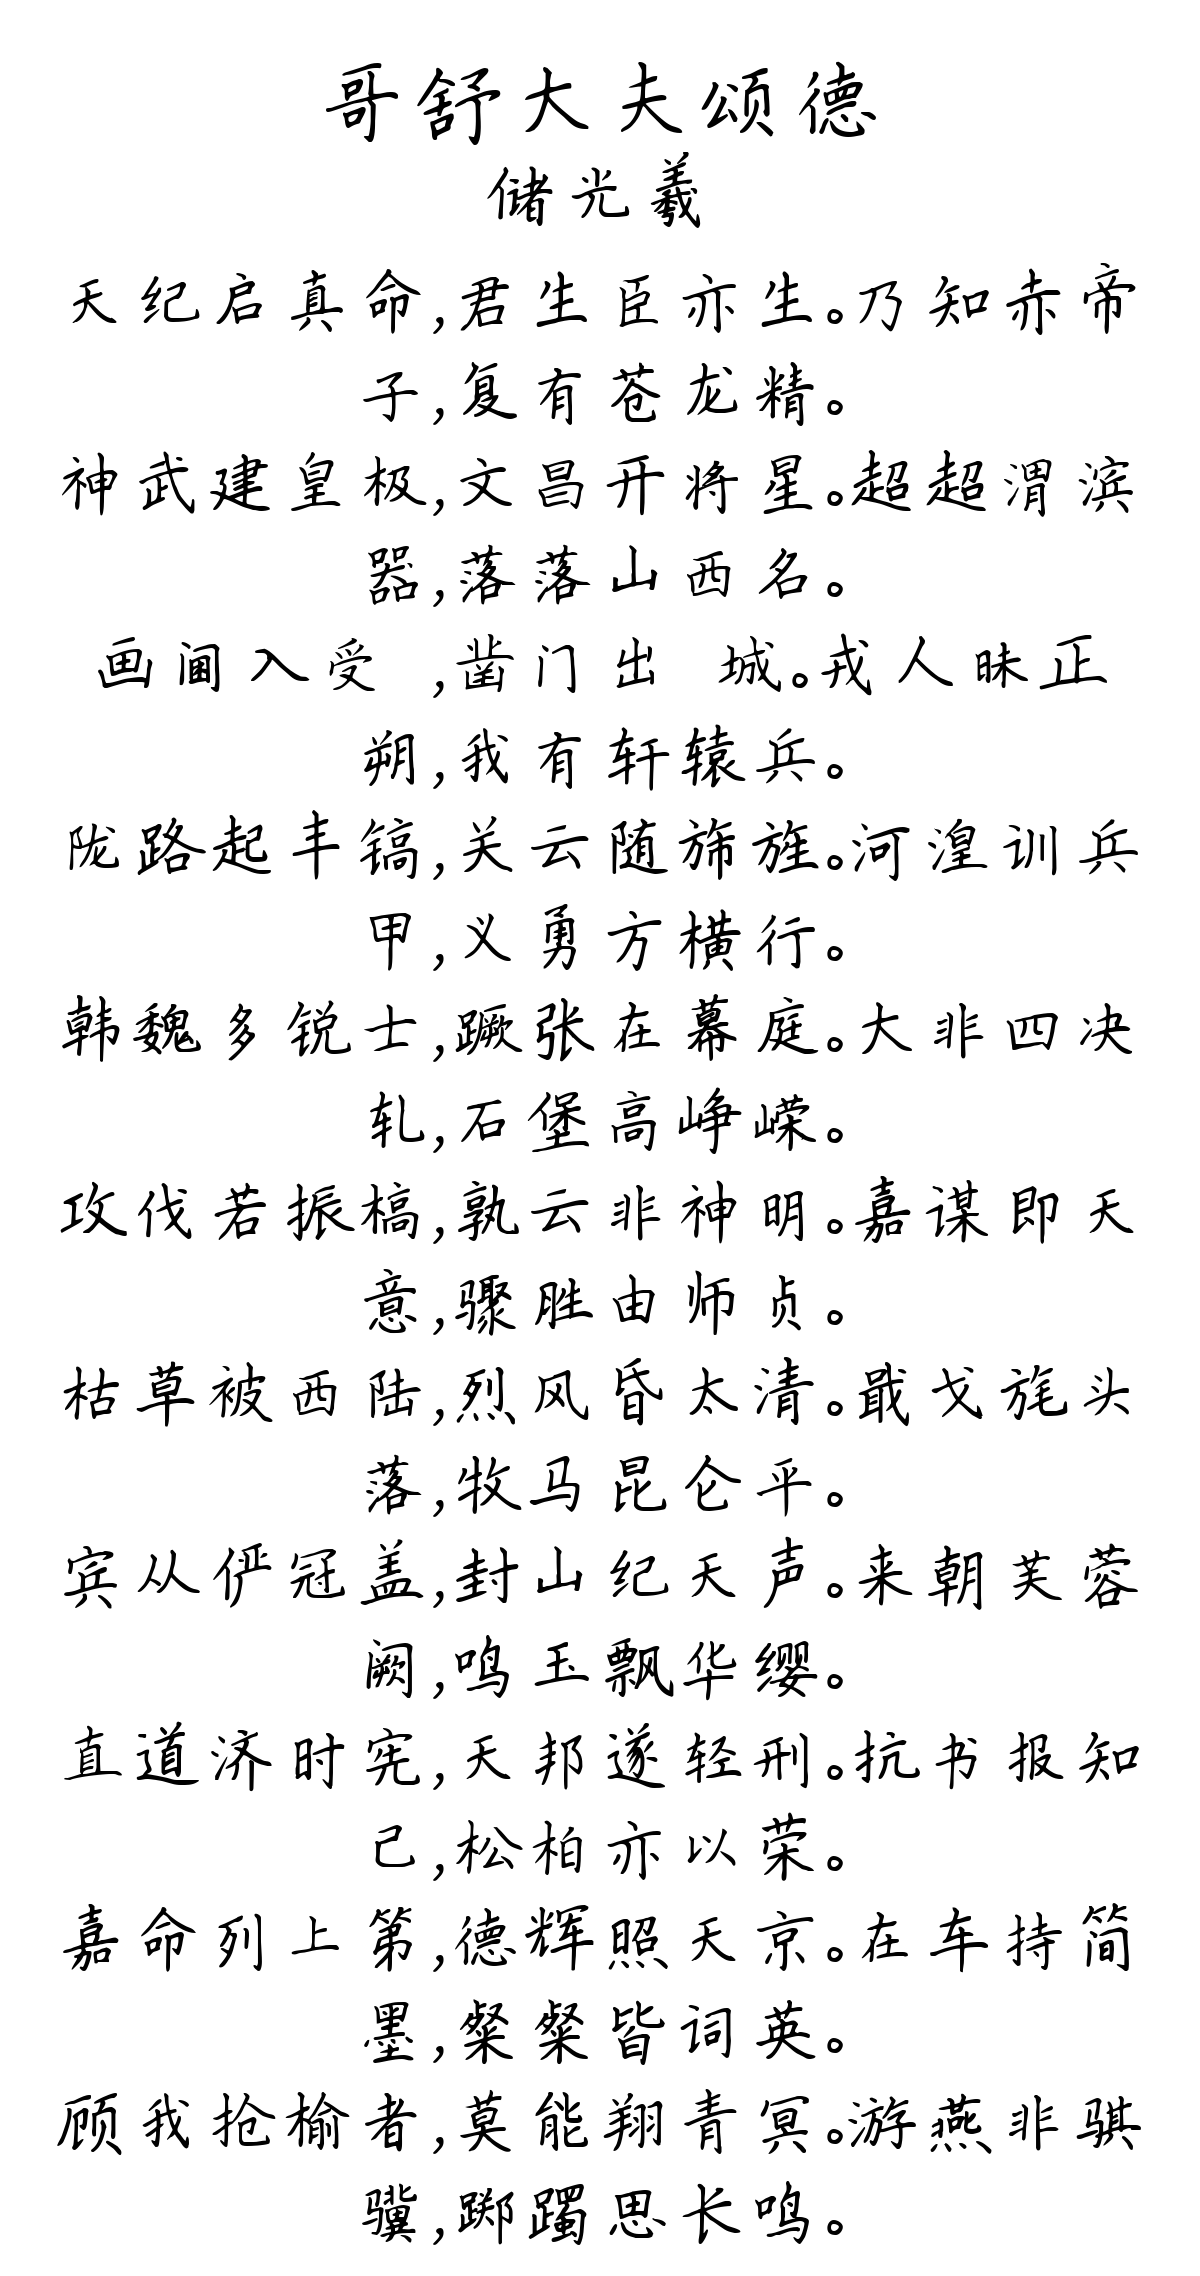 哥舒大夫颂德
储光羲
天纪启真命,君生臣亦生。乃知赤帝
子,复有苍龙精。
神武建皇极,文昌开将星。超超渭滨
器,落落山西名。
画阃入受 ,凿门出 城。戎人昧正
朔,我有轩辕兵。
陇路起丰镐,关云随旆旌。河湟训兵
甲,义勇方横行。
韩魏多锐士,蹶张在幕庭。大非四决
轧,石堡高峥嵘。
攻伐若振槁,孰云非神明。嘉谋即天
意,骤胜由师贞。
枯草被西陆,烈风昏太清。戢戈旄头
落,牧马昆仑平。
宾从俨冠盖,封山纪天声。来朝芙蓉
阙,鸣玉飘华缨。
直道济时宪,天邦遂轻刑。抗书报知
己,松柏亦以荣。
嘉命列上第,德辉照天京。在车持简
墨,粲粲皆词英。
顾我抢榆者,莫能翔青冥。游燕非骐
骥,踯躅思长鸣。